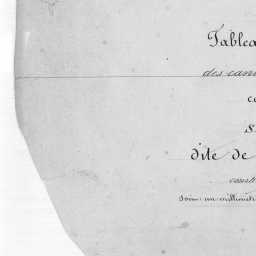 Tablea
des can
c
s
dite de
const
Soin: un millimetr